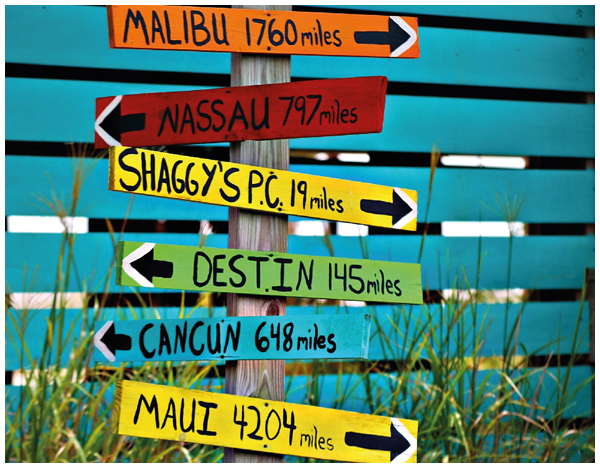 MALIBU 1760 miles
NASSAU 797 miles
SHAGGY'S P.C. 19 miles
DESTIN 145 miles
CANCUN 648 miles
MAUI 4204 miles